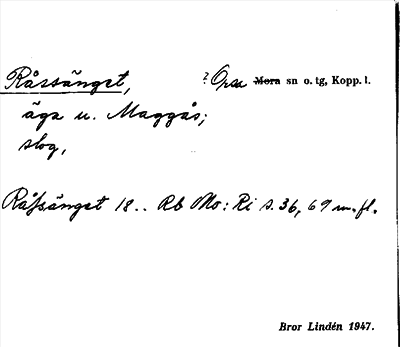 Råssänget, ? Orsa Mora sn o. tg, Kopp. l.
äga u. Maggås;
slog,
Råſsänget 18.. Rb Mo: Ri s. 36, 69 m. fl.
Bror Lindén 1947.